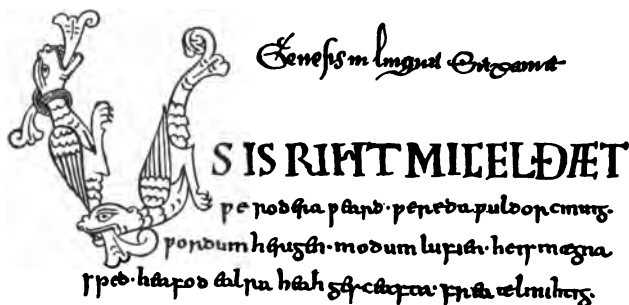 Genesis in lingua Saxania
US IS RIHT MICEL ÐÆT
ƿe rodera ƿeard · ƿereda ƿuldor cining·
ƿordum herigen · modum lufien · he is mægna
sped · heafod ealra heah gesceafta · frea ælmihtig·